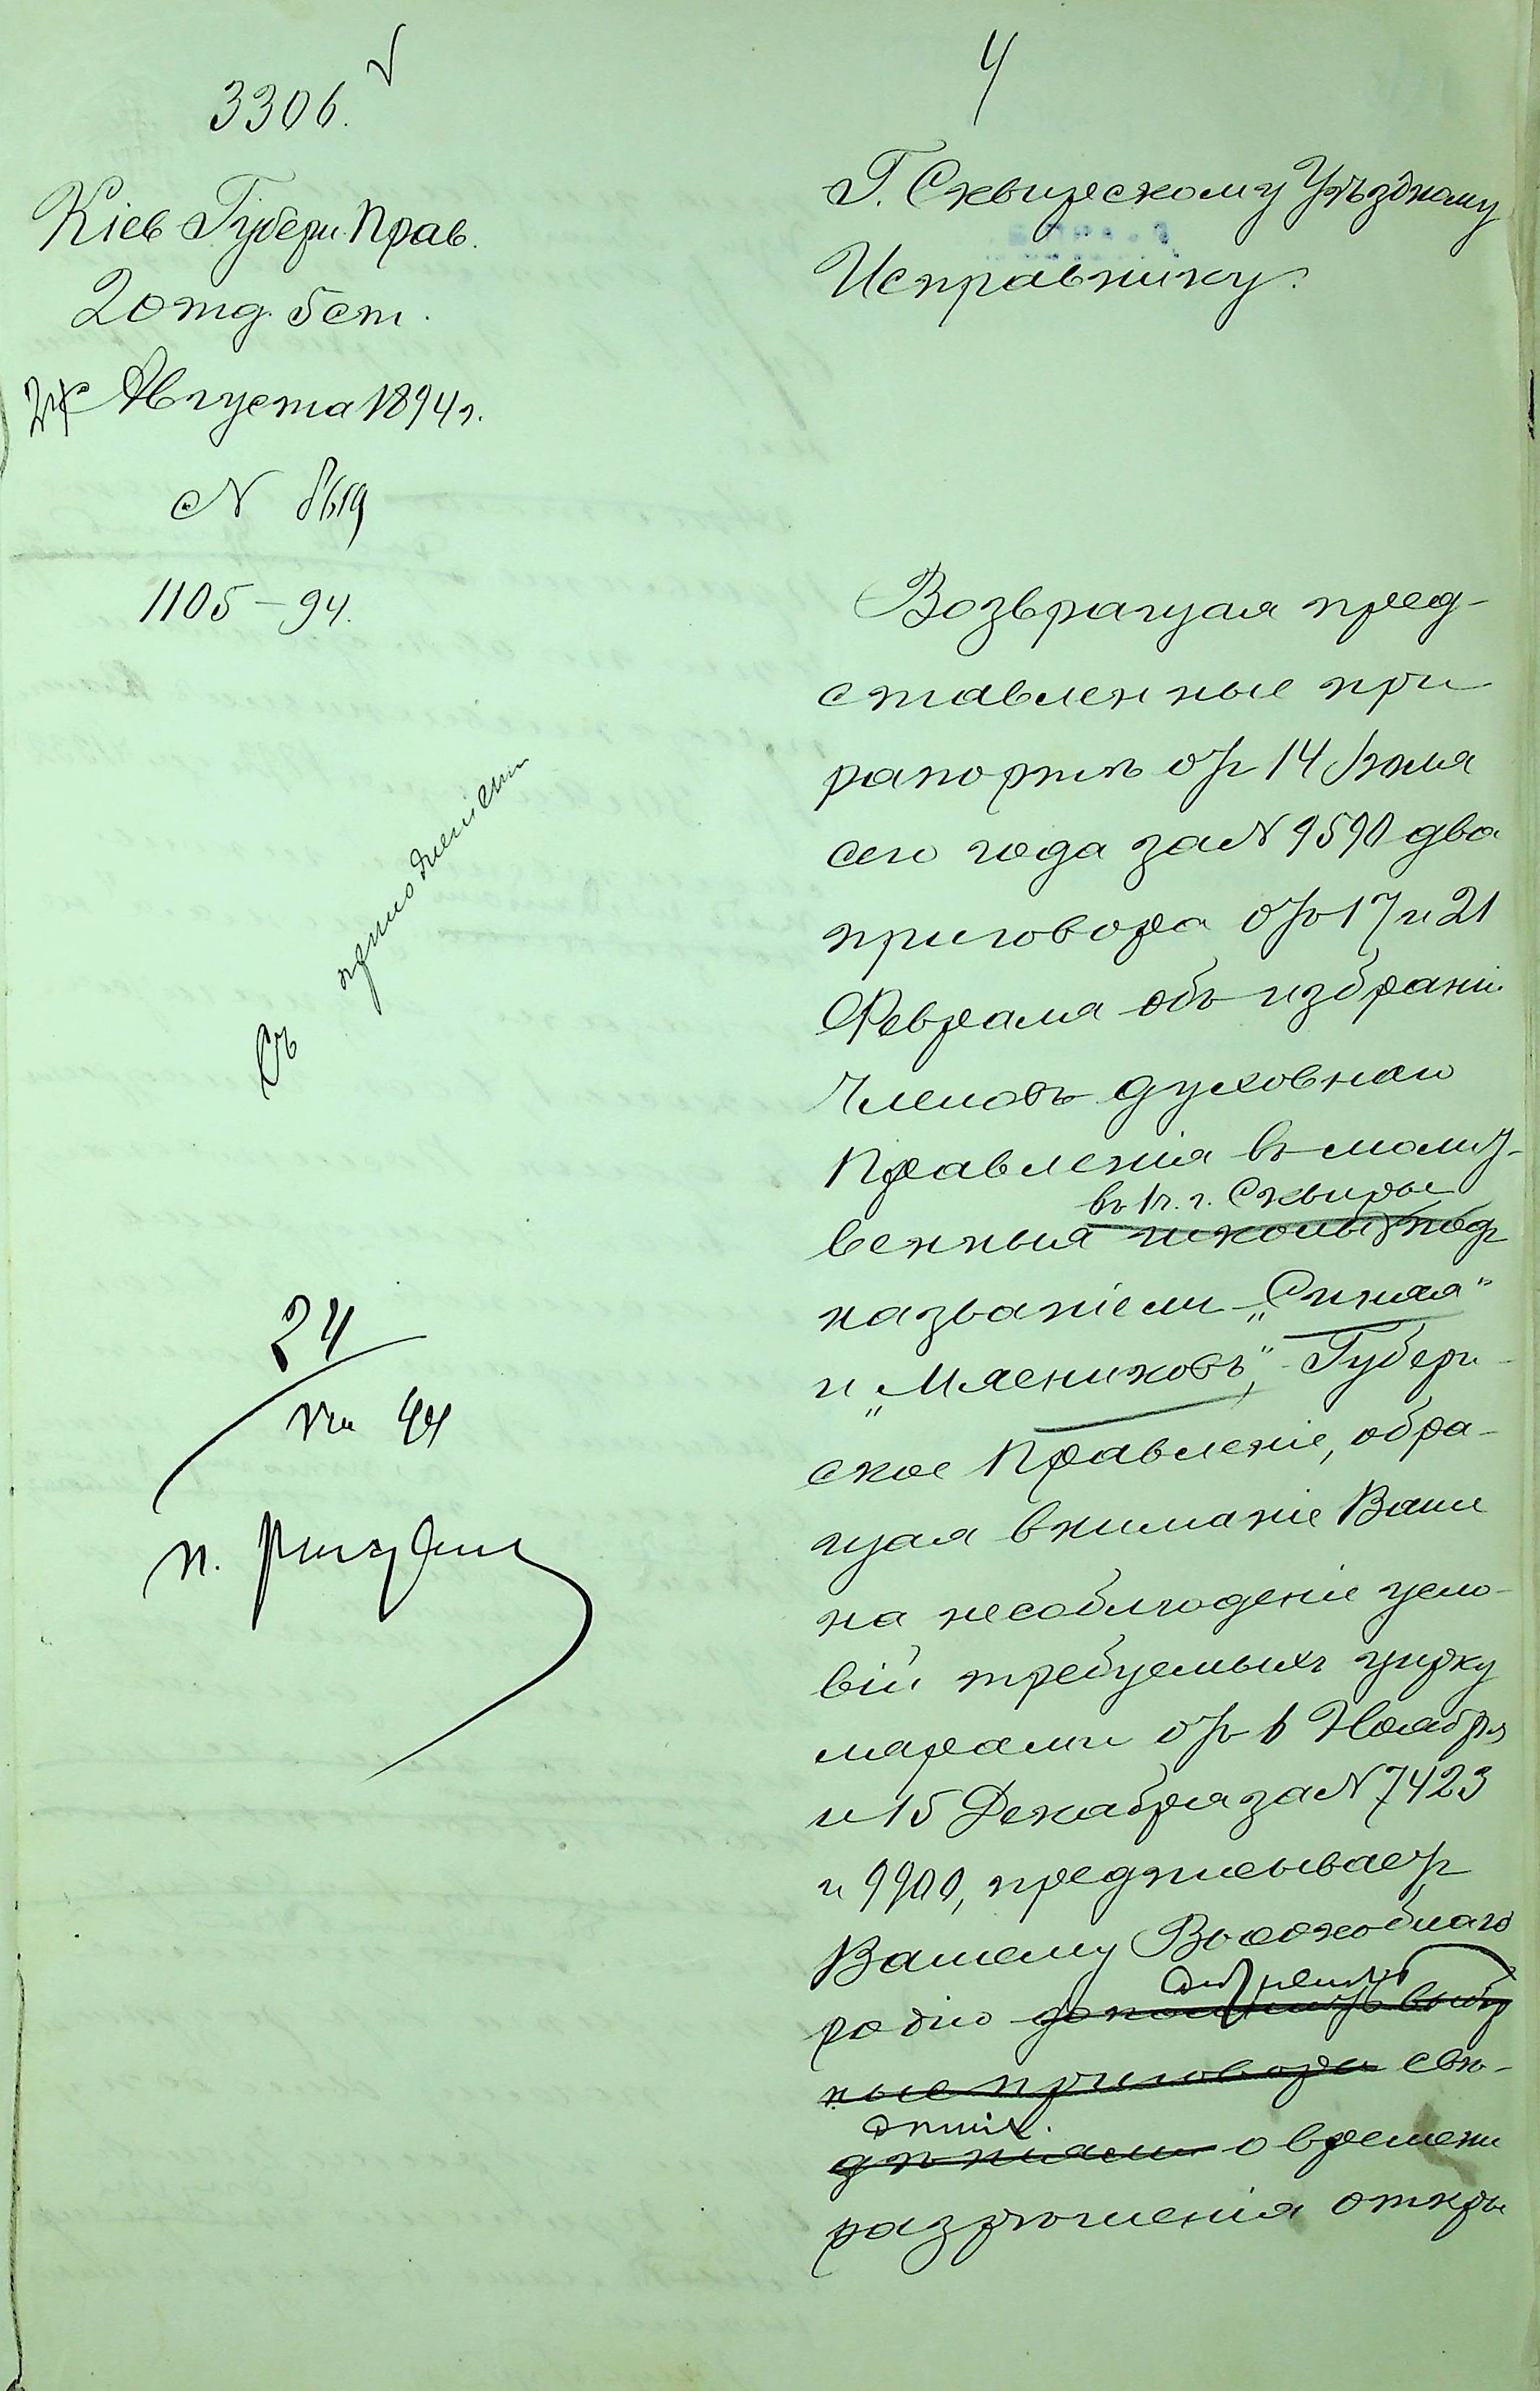 3306.
4
Кіев Губерн. Прав.
2 отд. 5 ст.
24 Августа 1894 г.
N 8619
1105-94.
Съ приложеніемъ
24
п.
Г. Сквирскому Уѣздному
Исправнику.
Возвращая пред-
ставленные при
рапортѣ отъ 14 Іюня
сего года за N 9590 два
приговора отъ 17 и 21
Февраля объ избраніи
Членовъ духовнаго
Правленія въ молит-
въ г. Сквирѣ
венныя школы подъ
названіемъ „Синая"
и „Мясниковъ", Губерн-
ское Правленіе, обра-
щая вниманіе Ваше
на несоблюденіе усло-
вій требуемыхъ цирку
лярами отъ 6 Ноября
и 15 Декабря за N 7423
и 9900, предписываетъ
Вашему Высокоблаго
родію
ные приговора свѣ-
дѣніями о времени
разрѣшенія откры